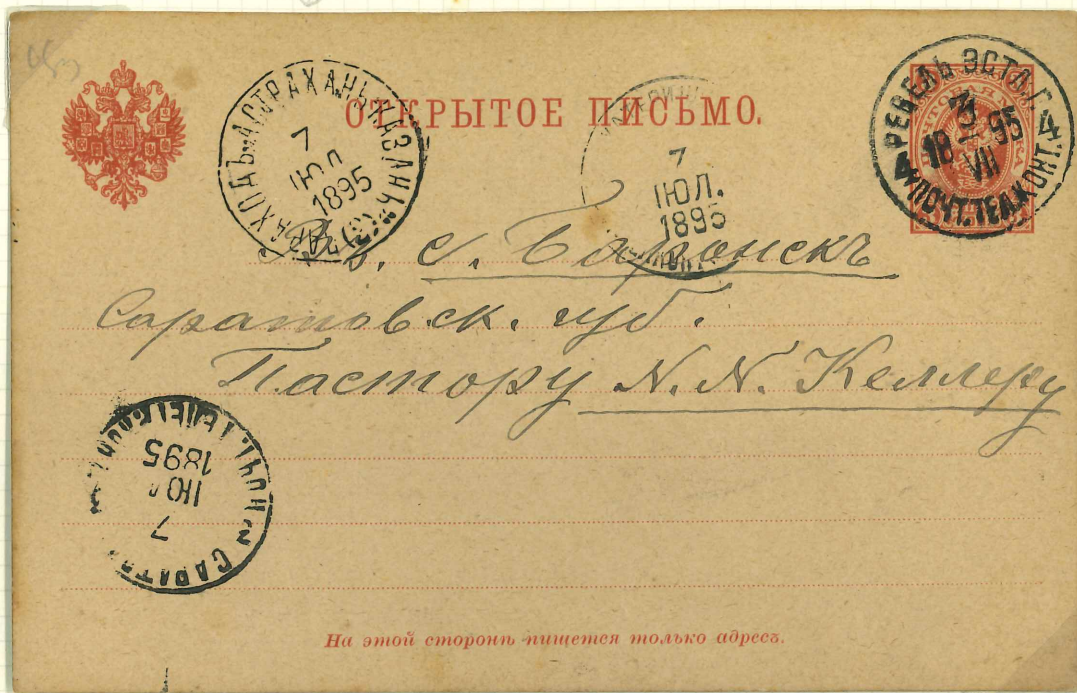 ОТКРЫТОЕ ПИСЬМО.
ПАРАХОДЪ „АСТРАХАНЬ-КАЗАНЬ“ (2)
7
ІЮЛ
1895
7
ІЮЛ.
1895
РЕВЕЛЬ ЭСТЛ. Г.
3
18 VII 95
4 ПОЧТ. ТЕЛ. КОНТ. 4
Въ с. Баронскъ
Саратовск. губ.
Пастору N. N. Келлеру
САРАТ
7
ІЮЛ
1895
На этой сторонѣ пишется только адресъ.